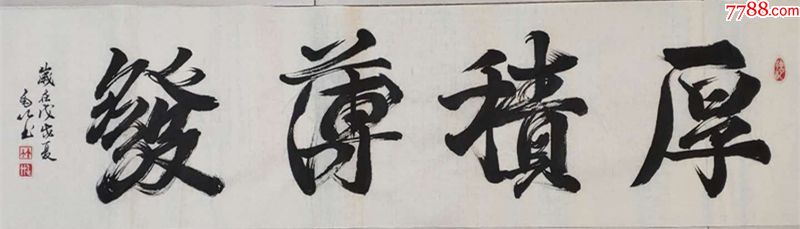 厚積薄發
歲在戊戌夏
7788.com